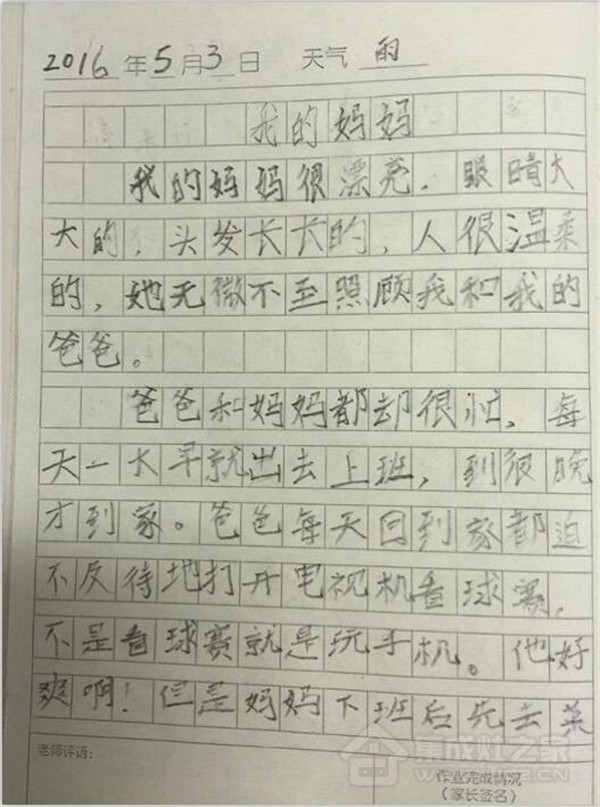 2016年5月3日 天气 的
我的妈妈
我的妈妈很漂亮.眼睛大
大的,头发长长的,人很温柔
的,她无微不至照顾我和我的
爸爸。
爸爸和妈妈都却很忙,每
天一大早就出去上班,到很晚
才到家。爸爸每天回到家都迫
不反待地打开电视机看球赛,
不是看球赛就是玩手机。他好
爽啊!但是妈妈下班后先去菜
老师评语:
作业完成情况
(家长签名)
集成灶之家